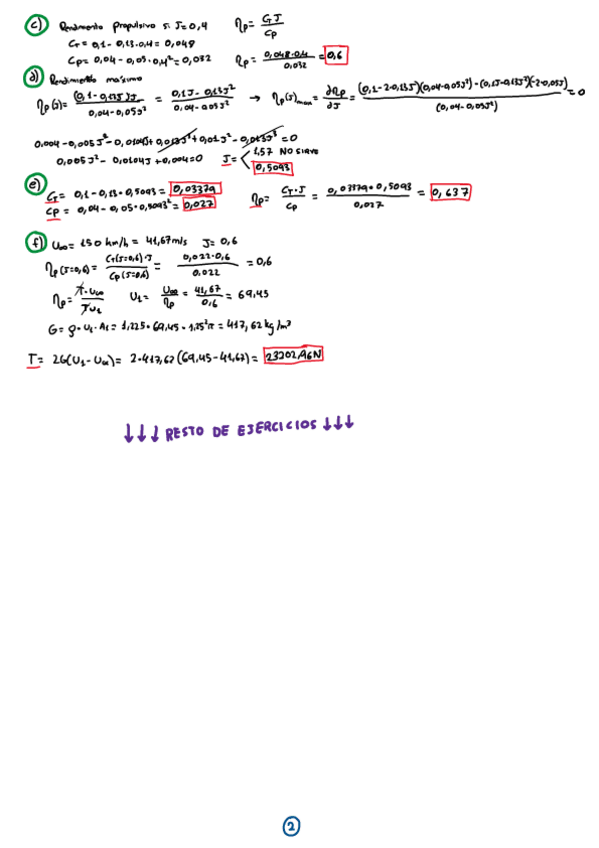 c) Rendimiento propulsivo si J=0,4 ηp = CT J / CP
CT = 0,1 - 0,13·0,4 = 0,048
CP = 0,04 - 0,05·0,4² = 0,032 ηp = 0,048·0,4 / 0,032 = 0,6
d) Rendimiento máximo
ηp(J) = (0,1 - 0,13J)J / 0,04 - 0,05J² = 0,1J - 0,13J² / 0,04 - 0,05J² → ηp(J)max = dηp / dJ = (0,1 - 2·0,13J)(0,04 - 0,05J²) - (0,1J - 0,13J²)(-2·0,05J) / (0,04 - 0,05J²) = 0
0,004 - 0,005J² - 0,0104J + 0,013J³ + 0,01J² - 0,013J³ = 0
0,005J² - 0,0104J + 0,004 = 0 J = 1,57 NO sirve
0,5093
e) CT = 0,1 - 0,13·0,5093 = 0,03379
CP = 0,04 - 0,05·0,5093² = 0,027 ηp = CT·J / CP = 0,03379·0,5093 / 0,027 = 0,637
f) U∞ = 150 km/h = 41,67 m/s J = 0,6
ηp(J=0,6) = CT(J=0,6)·J / CP(J=0,6) = 0,022·0,6 / 0,022 = 0,6
ηp = T·U∞ / T U1 U1 = U∞ / ηp = 41,67 / 0,6 = 69,45
G = ρ·U1·A1 = 1,225·69,45·1,25²π = 417,62 kg/m³
T = 2G(U1 - U∞) = 2·417,62(69,45 - 41,67) = 23202,96N
↓↓↓ RESTO DE EJERCICIOS ↓↓↓
2